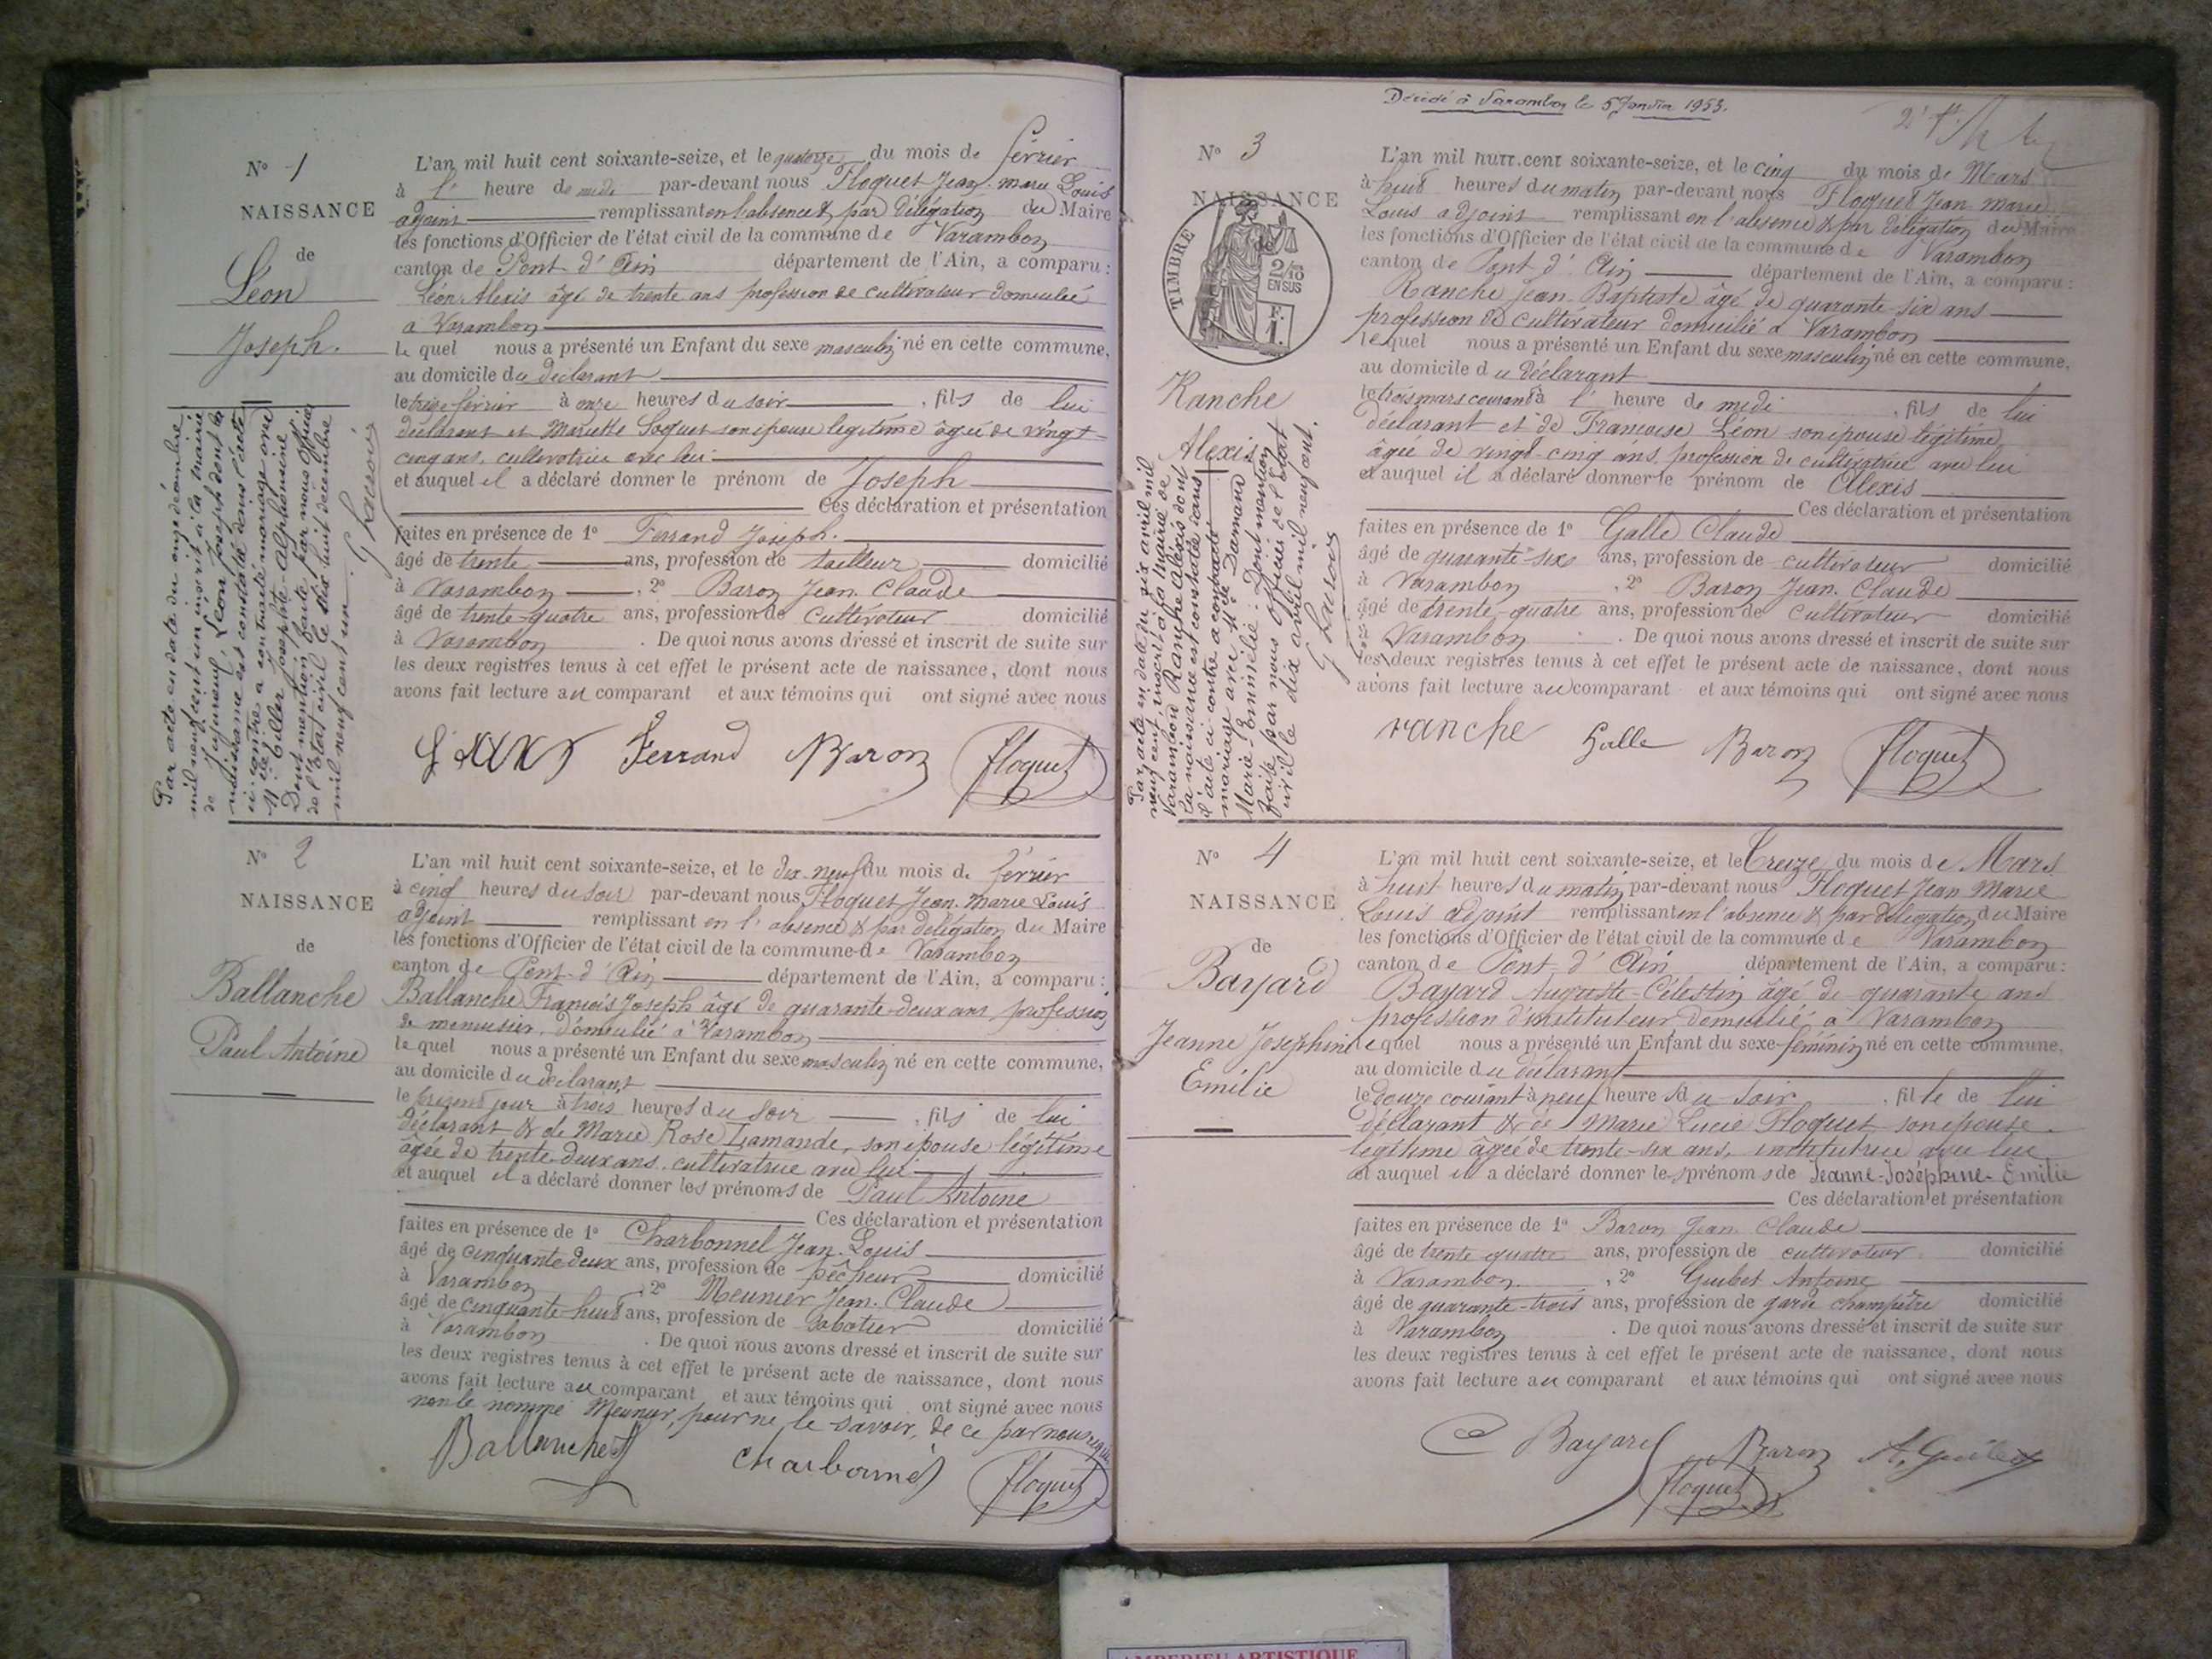 N° 1
NAISSANCE
de
Léon
Joseph.
Par acte en date du onze décembre
mil neuf cent un inscrit à la mairie
de Jujurieux, Léon Joseph dont la
naissance est constatée dans l'acte
ci-contre a contracté mariage avec
M
Joséphte-Alphonsine
Dont mention faite par nous officier
de l'Etat civil le dix huit décembre
mil neuf cent un.
L'an mil huit cent soixante-seize, et le quatorze du mois de février
à l' heure de midi par-devant nous Floquet Jean-marie Louis
adjoint remplissant en l'absence & par délégation du Maire
les fonctions d'Officier de l'état civil de la commune de Varambon
canton de Pont d'Ain département de l'Ain, a comparu :
Léon Alexis âgé de trente ans profession de cultivateur domicilié
à Varambon
lequel nous a présenté un Enfant du sexe masculin né en cette commune,
au domicile du déclarant
le treize février à onze heures du soir , fils de lui
déclarant et Mariette Soquet son épouse légitime âgée de vingt-
cinq ans, cultivatrice avec lui
et auquel il a déclaré donner le prénom de Joseph
Ces déclaration et présentation
faites en présence de 1° Ferrand Joseph.
âgé de trente ans, profession de tailleur domicilié
à Varambon , 2° Baron Jean Claude
âgé de trente-quatre ans, profession de cultivateur domicilié
à Varambon . De quoi nous avons dressé et inscrit de suite sur
les deux registres tenus à cet effet le présent acte de naissance, dont nous
avons fait lecture au comparant et aux témoins qui ont signé avec nous
Ferrand Baron Floquet
N° 2
NAISSANCE
de
Ballanche
Paul Antoine
L'an mil huit cent soixante-seize, et le dix-neuf du mois de février
à cinq heures du soir par-devant nous Floquet Jean-Marie Louis
adjoint remplissant en l'absence & par délégation du Maire
les fonctions d'Officier de l'état civil de la commune de Varambon
canton de Pont-d'Ain département de l'Ain, a comparu :
Ballanche François Joseph âgé de quarante-deux ans profession
de menuisier, domicilié à Varambon
lequel nous a présenté un Enfant du sexe masculin né en cette commune,
au domicile du déclarant
le présent jour à trois heures du soir , fils de lui
déclarant & de Marie Rose Lamande, son épouse légitime
âgée de trente-deux ans, cultivatrice avec lui
et auquel il a déclaré donner les prénoms de Paul Antoine
Ces déclaration et présentation
faites en présence de 1° Charbonnel Jean-Louis
âgé de cinquante deux ans, profession de pêcheur domicilié
à Varambon , 2° Meunier Jean-Claude
âgé de cinquante-huit ans, profession de sabotier domicilié
à Varambon . De quoi nous avons dressé et inscrit de suite sur
les deux registres tenus à cet effet le présent acte de naissance, dont nous
avons fait lecture au comparant et aux témoins qui ont signé avec nous
non le nommé Meunier, pour ne le savoir, de ce par nous requis
Ballanche Charbonnel Floquet
Décédé à Varambon le 5 Janvier 1953.
N° 3
NAISSANCE
de
TIMBRE
2/10
EN SUS
F.
1.
Ranche
Alexis
Par acte en date du dix avril mil
neuf cent, inscrit à la mairie de
Varambon Ranche Alexis dont
la naissance est constatée dans
l'acte ci-contre a contracté
mariage avec Mlle Damand
Marie-Emmélie. Dont mention
faite par nous Officier de l'Etat
civil le dix avril mil neuf cent.
L'an mil huit.cent soixante-seize, et le cinq du mois de Mars
à huit heures du matin par-devant nous Floquet Jean marie
Louis adjoint remplissant en l'absence & par délégation du Maire
les fonctions d'Officier de l'état civil de la commune de Varambon
canton de Pont d'Ain département de l'Ain, a comparu :
Ranche Jean-Baptiste âgé de quarante-six ans
profession de cultivateur domicilié à Varambon
lequel nous a présenté un Enfant du sexe masculin né en cette commune,
au domicile du déclarant
le trois mars courant à l' heure de midi , fils de lui
déclarant et de Françoise Léon son épouse légitime,
âgée de vingt-cinq ans, profession de cultivatrice avec lui
et auquel il a déclaré donner le prénom de Alexis
Ces déclaration et présentation
faites en présence de 1° Galle Claude
âgé de quarante-six ans, profession de cultivateur domicilié
à Varambon , 2° Baron Jean-Claude
âgé de trente-quatre ans, profession de cultivateur domicilié
à Varambon . De quoi nous avons dressé et inscrit de suite sur
les deux registres tenus à cet effet le présent acte de naissance, dont nous
avons fait lecture au comparant et aux témoins qui ont signé avec nous
ranche Galle Baron Floquet
N° 4
NAISSANCE
de
Bayard
Jeanne Joséphine
Emilie
L'an mil huit cent soixante-seize, et le treize du mois de Mars
à huit heures du matin par-devant nous Floquet Jean Marie
Louis adjoint remplissant en l'absence & par délégation du Maire
les fonctions d'Officier de l'état civil de la commune de Varambon
canton de Pont d'Ain département de l'Ain, a comparu :
Bayard Auguste-Célestin âgé de quarante ans
profession d'instituteur domicilié à Varambon
lequel nous a présenté un Enfant du sexe féminin né en cette commune,
au domicile du déclarant
le douze courant à neuf heures du soir , fille de lui
déclarant & de Marie Lucie Floquet son épouse
légitime âgée de trente-six ans, institutrice avec lui
et auquel il a déclaré donner les prénoms de Jeanne-Joséphine-Emilie
Ces déclaration et présentation
faites en présence de 1° Baron Jean Claude
âgé de trente quatre ans, profession de cultivateur domicilié
à Varambon , 2° Guibet Antoine
âgé de quarante-trois ans, profession de garde champêtre domicilié
à Varambon . De quoi nous avons dressé et inscrit de suite sur
les deux registres tenus à cet effet le présent acte de naissance, dont nous
avons fait lecture au comparant et aux témoins qui ont signé avec nous
C Bayard Baron A. Guibet
Floquet